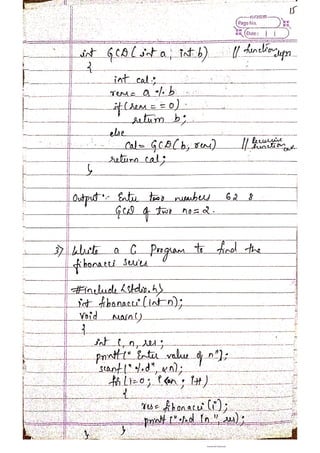 15
Page No.
Date: / /
int GCD (int a, int b) // function defn
{
int cal;
rem = a % b
if (rem == 0)
return b;
else
Cal = GCD (b, rem) // Recursive function call
return cal;
}
Output:- Enter two numbers 62 8
GCD of two no = 2.
3) Write a C Program to find the
fibonacci series
#include <stdio.h>
int fibonacci (int n);
void main()
{
int i, n, res;
printf (" Enter value of n");
scanf (" %d", &n);
for (i=0; i<n; i++)
{
res = fibonacci (i);
printf ("%d \n", res);
}
}